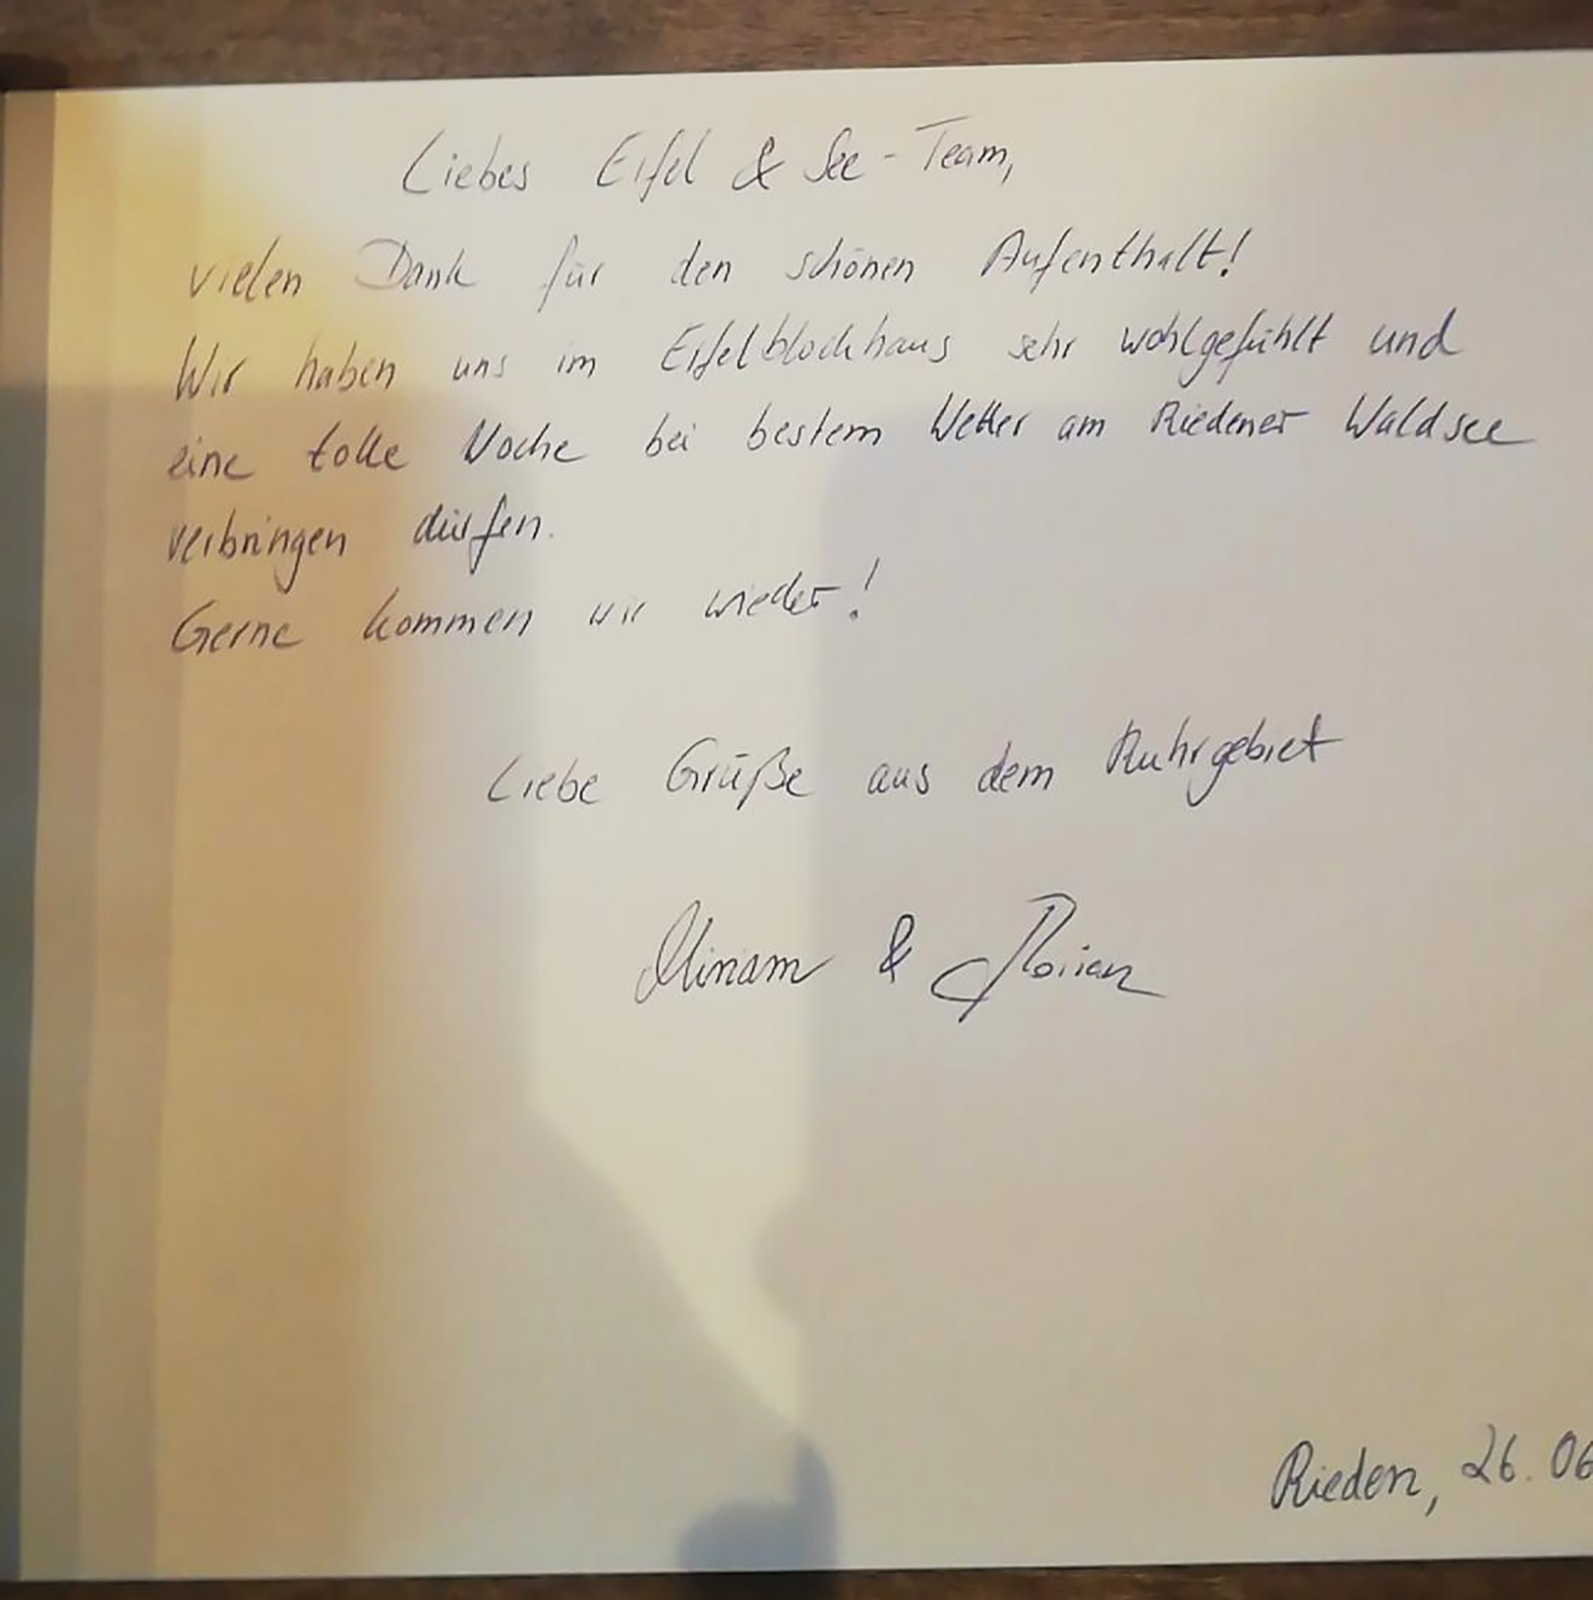 Liebes Eifel & See-Team,
vielen Dank für den schönen Aufenthalt!
Wir haben uns im Eifelblockhaus sehr wohlgefühlt und
eine tolle Woche bei bestem Wetter am Riedener Waldsee
verbringen dürfen.
Gerne kommen wir wieder!
Liebe Grüße aus dem Ruhrgebiet
Miriam & Florian
Rieden, 26.06